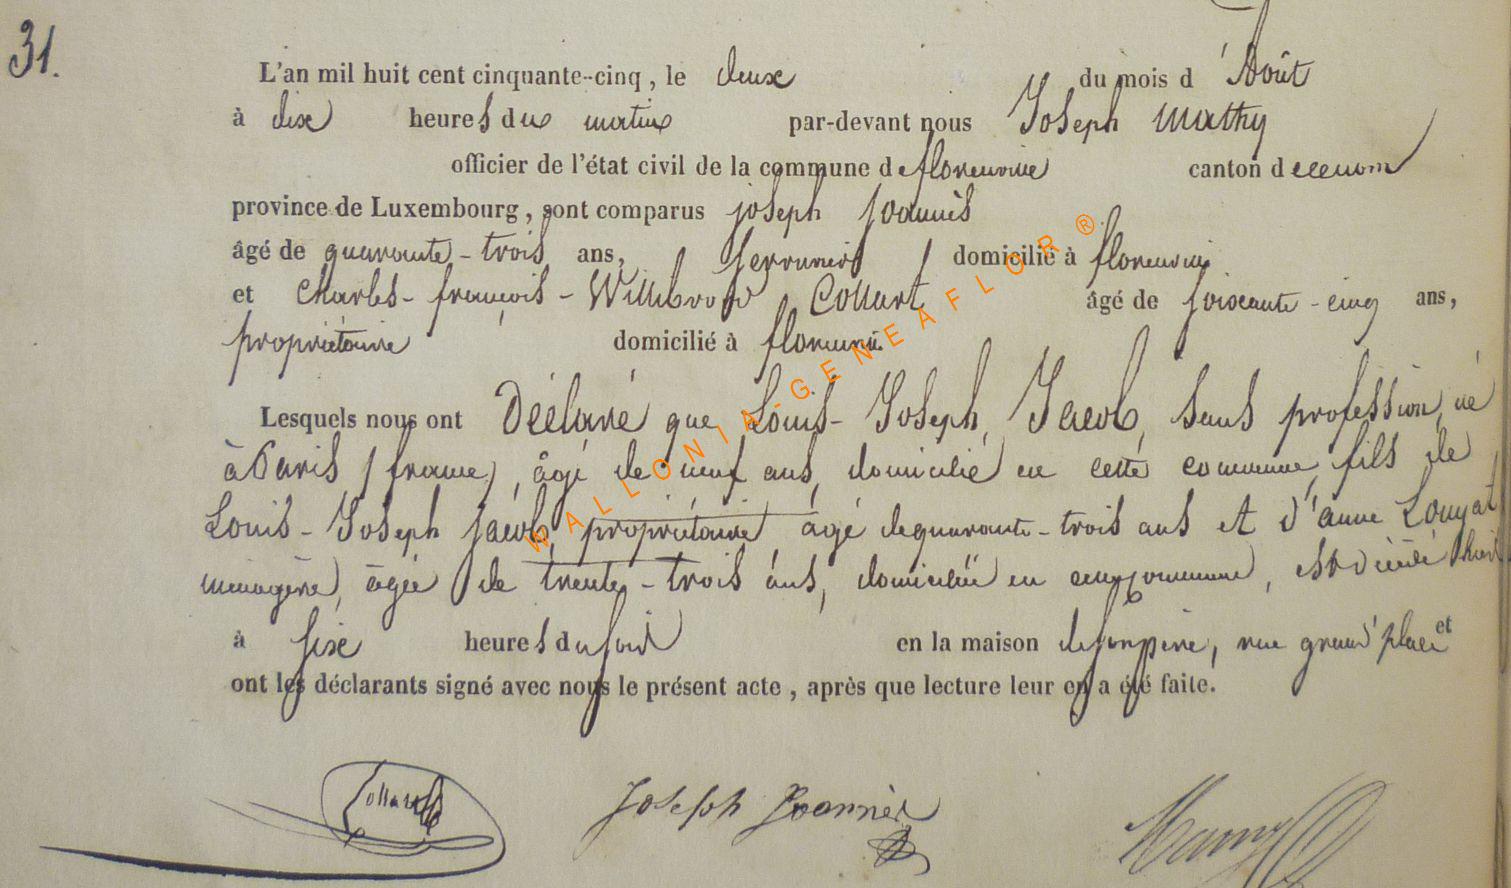 31.
L'an mil huit cent cinquante-cinq, le deux du mois d'Août
à dix heures du matin par-devant nous Joseph Mathy
officier de l'état civil de la commune de florenville canton de
province de Luxembourg, sont comparus joseph Joannès
âgé de quarante-trois ans, serrurier domicilié à florenville
et Charles-françois-Willibrord Collart âgé de soixante-cinq ans,
propriétaire domicilié à florenville
Lesquels nous ont Déclaré que Louis-Joseph, Jacob, sans profession, né
à Paris (france), âgé de neuf ans, domicilié en cette commune, fils de
Louis-Joseph Jacob, propriétaire âgé de quarante-trois ans et d'anne Louyat
ménagère, âgée de trente-trois ans, domiciliés en cette commune, est décédé hier
à six heures du soir en la maison de son père, rue grand'place et
ont les déclarants signé avec nous le présent acte, après que lecture leur en a été faite.
Collart Joseph Joannès
WALLONIA-GENEAFLOR®